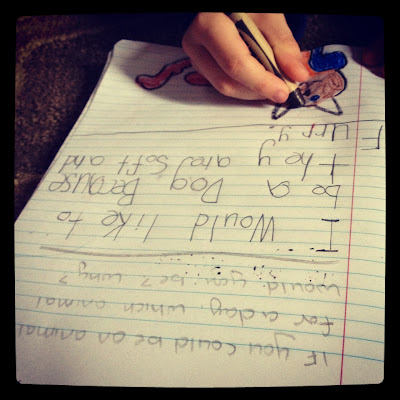 If you could be an animal
for a day, which animal
would you be? Why?
I Would like to
be a Dog Because
they are soft and
Furry.